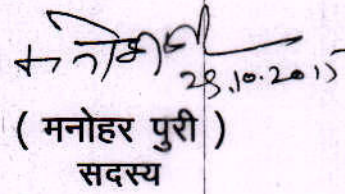 29.10.2015
( मनोहर पुरी )
सदस्य